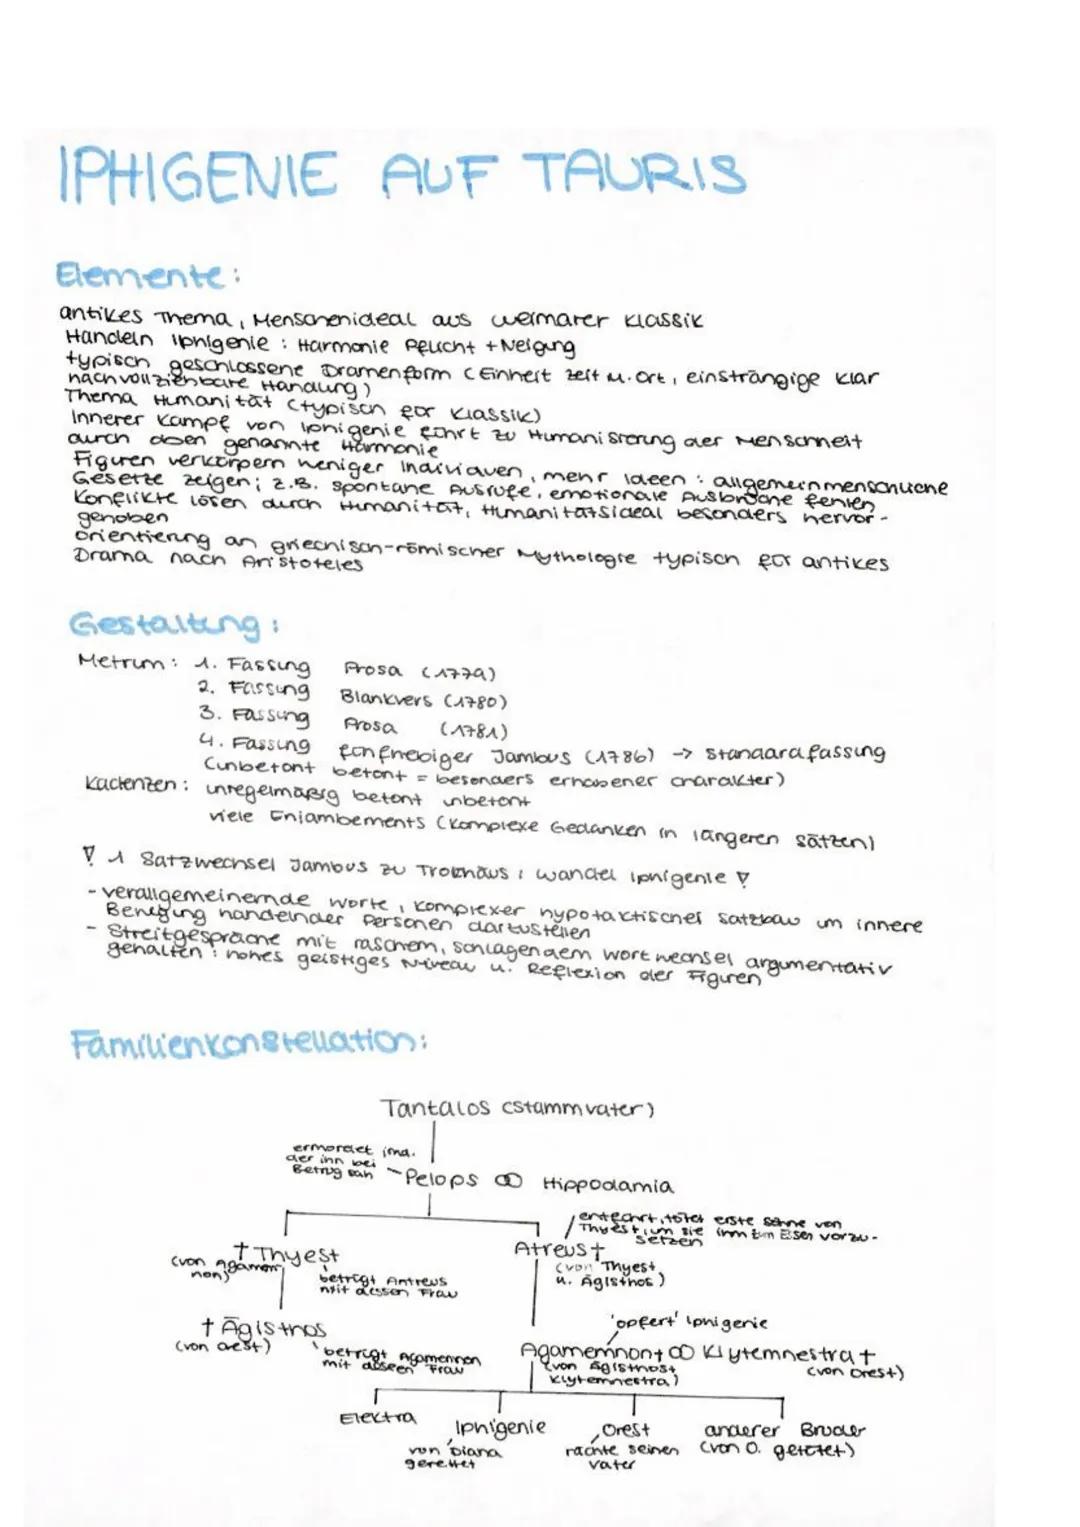 IPHIGENIE AUF TAURIS
Elemente:
antikes Thema, Menschenideal aus weimarer Klassik
Handeln Iphigenie: Harmonie Pflicht + Neigung
typisch geschlossene Dramenform (Einheit zeit u. Ort, einsträngige klar
nachvollziehbare Handlung)
Thema Humanität (typisch für Klassik)
Innerer Kampf von Iphigenie führt zu Humanisierung der Menschheit
durch oben genannte Harmonie
Figuren verkörpern weniger Individuen, mehr Ideen: allgemeinmenschliche
Gesetze zeigen; z.B. spontane Ausrufe, emotionale Ausbrüche fehlen
Konflikte lösen durch Humanität, Humanitätsideal besonders hervor-
gehoben
Orientierung an griechisch-römischer Mythologie typisch für antikes
Drama nach Aristoteles
Gestaltung:
Metrum: 1. Fassung Prosa (1779)
2. Fassung Blankvers (1780)
3. Fassung Prosa (1781)
4. Fassung fünfhebiger Jambus (1786) → Standarafassung
(unbetont betont = besonders erhabener charakter)
Kadenzen: unregelmäßig betont unbetont
viele Enjambements (komplexe Gedanken in längeren Sätzen)
1 Satzwechsel Jambus zu Trochäus: Wandel Iphigenie
- verallgemeinernde Worte, komplexer hypotaktischer Satzbau um innere
Bewegung handelnder Personen darzustellen
- Streitgespräche mit raschem, schlagendem Wortwechsel argumentativ
gehalten: hohes geistiges Niveau u. Reflexion der Figuren
Familienkonstellation:
Tantalos (Stammvater)
ermordet ihn,
der ihn bei
Betrug sah
Pelops ∞ Hippodamia
entführt, tötet erste Söhne von
Thyest, um sie ihm zum Essen vorzu-
setzen
† Thyest
(von Agamem
non)
betrügt Antreus
mit dessen Frau
Atreus †
(von Thyest
u. Ägisthos)
† Ägisthos
(von Orest)
betrügt Agamemnon
mit dessen Frau
'opfert' Iphigenie
Agamemnon † ∞ Klytemnestra †
(von Ägisthos +
Klytemnestra)
(von Orest)
Elektra
Iphigenie
von Diana
gerettet
Orest
rächte seinen
Vater
anderer Bruder
(von O. getötet)